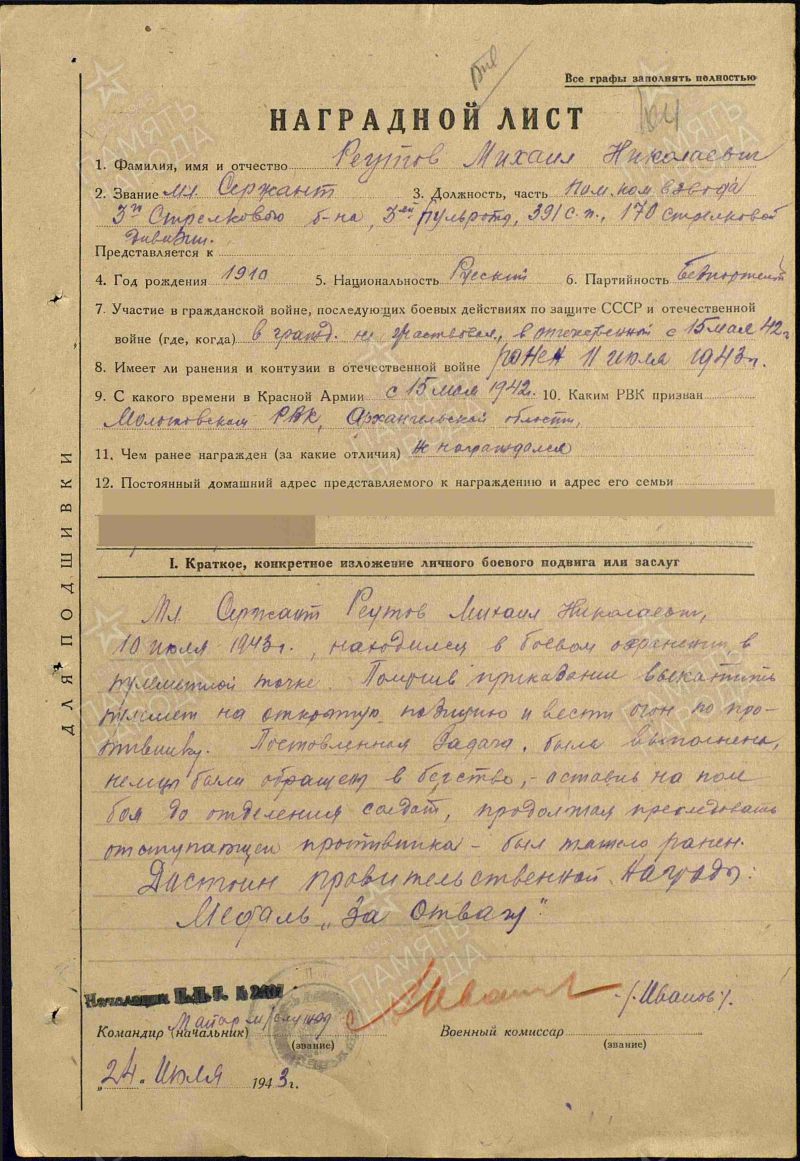 Все графы заполнять полностью
НАГРАДНОЙ ЛИСТ
1. Фамилия, имя и отчество Реутов Михаил Николаевич
2. Звание мл Сержант 3. Должность, часть Пом. ком взвода
3го Стрелкового б-на, 3ей пульроты, 391 с.п., 170 стрелковой
дивизии.
Представляется к
4. Год рождения 1910 5. Национальность Русский 6. Партийность Беспартийн
7. Участие в гражданской войне, последующих боевых действиях по защите СССР и отечественной
войне (где, когда) в гражд. не участвовал, в отечественной с 15 мая 42г
8. Имеет ли ранения и контузии в отечественной войне ранен 11 июля 1943г.
9. С какого времени в Красной Армии с 15 мая 1942г. 10. Каким РВК призван
Молотовским РВК, Архангельской области,
11. Чем ранее награжден (за какие отличия) не награждался
12. Постоянный домашний адрес представляемого к награждению и адрес его семьи
I. Краткое, конкретное изложение личного боевого подвига или заслуг
Мл Сержант Реутов Михаил Николаевич,
10 июля 1943г., находился в боевом охранении, в
пулеметной точке. Получив приказание выкатить
пулемет на открытую позицию и вести огон по про-
тивнику. Поставленная задача, была выполнена,
немцы были обращены в бегство, - оставив на поле
боя до отделения солдат, продолжая преследовать
отступающего противника - был тяжело ранен.
Достоин правительственной награды:
Медаль „За Отвагу".
Начальник
Командир (начальник) Майор м/службы
(звание)
/Иванов/.
Военный комиссар
(звание)
„24" Июля 1943г.
ДЛЯ ПОДШИВКИ
ПАМЯТЬ НАРОДА